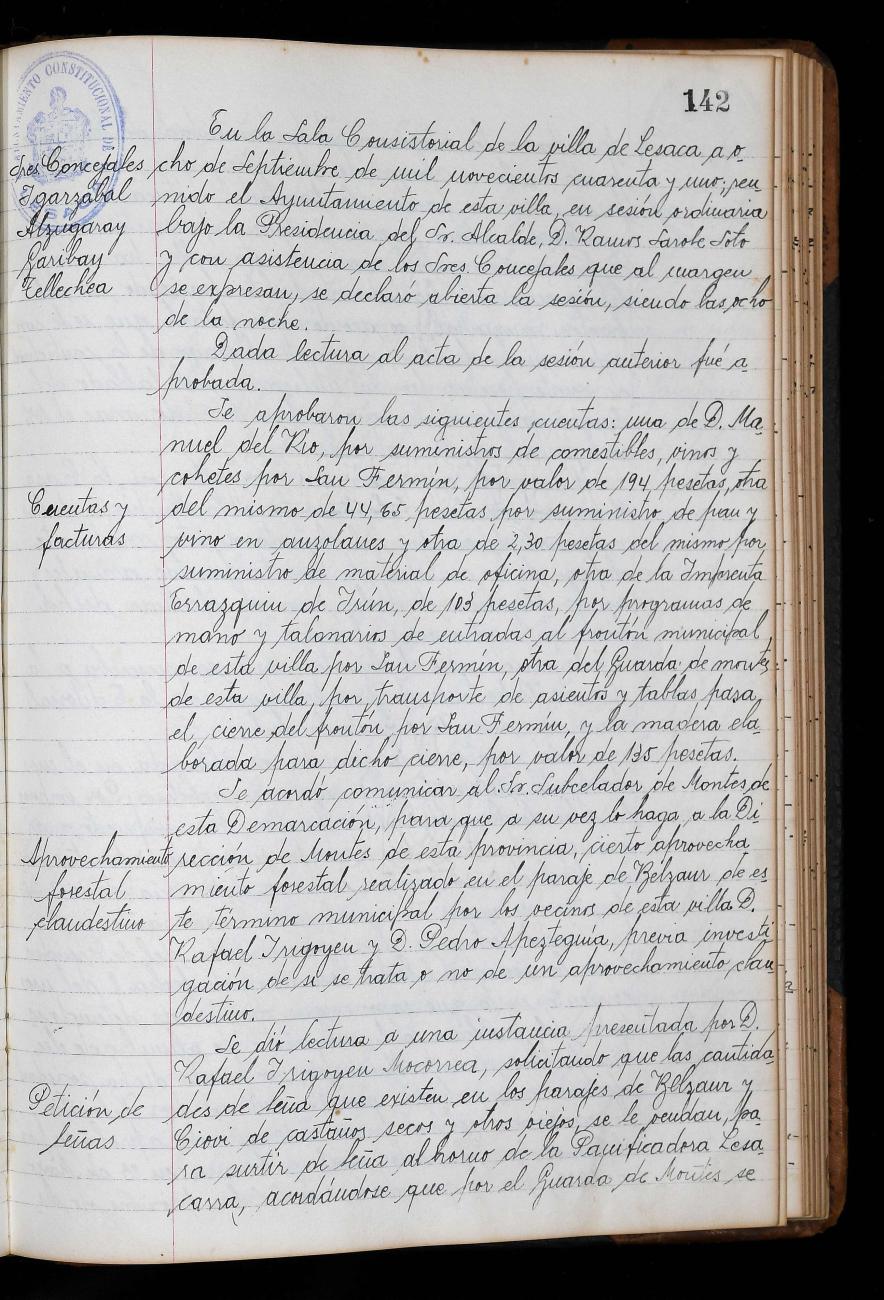 142
AYUNTAMIENTO CONSTITUCIONAL DE
Sres. Concejales
Igarzabal
Alzugaray
Garibay
Tellechea
En la Sala Consistorial de la villa de Lesaca a o
cho de Septiembre de mil novecientos cuarenta y uno; reu
nido el Ayuntamiento de esta villa, en sesión ordinaria
bajo la Presidencia del Sr. Alcalde, D. Ramos Sarobe Soto
y con asistencia de los Sres. Concejales que al margen
se expresan, se declaró abierta la sesión, siendo las ocho
de la noche.
Dada lectura al acta de la sesión anterior fué a
probada.
Cuentas y
facturas
Se aprobaron las siguientes cuentas: una de D. Ma
nuel del Rio, por suministros de comestibles, vinos y
cohetes por San Fermín, por valor de 194 pesetas, otra
del mismo de 44,65 pesetas, por suministro de pan y
vino en auzolanes y otra de 2,30 pesetas del mismo por
suministro de material de oficina, otra de la Imprenta
Errazquin de Irún, de 103 pesetas, por programas de
mano y talonarios de entradas al frontón municipal
de esta villa por San Fermín, otra del Guarda de montes
de esta villa, por transporte de asientos y tablas para
el cierre del frontón por San Fermín, y la madera ela
borada para dicho cierre, por valor de 135 pesetas.
Aprovechamiento
forestal
clandestino
Se acordó comunicar al Sr. Subcelador de Montes de
esta Demarcación, para que a su vez lo haga a la Di
rección de Montes de esta provincia, cierto aprovecha
miento forestal realizado en el paraje de Belzaur de es
te término municipal por los vecinos de esta villa D.
Rafael Irigoyen y D. Pedro Apezteguía, previa investi
gación de si se trata o no de un aprovechamiento clan
destino.
Petición de
leñas
Se dió lectura a una instancia presentada por D.
Rafael Irigoyen Mocorrea, solicitando que las cantida
des de leña que existen en los parajes de Belzaur y
Ciovi de castaños secos y otros viejos, se le vendan, pa
ra surtir de leña al horno de la Panificadora Lesa
carra, acordándose que por el Guarda de Montes se